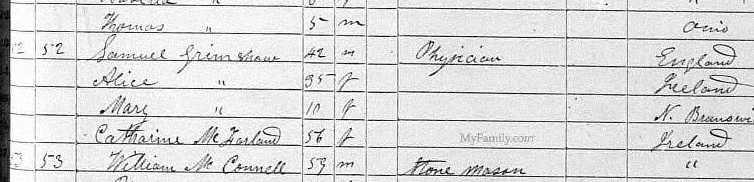 Thomas " 5 m Ohio
52 Samuel Grimshaw 42 m Physician England
Alice " 35 f Ireland
Mary " 10 f N. Brunswi
Catharine McFarland 56 f Ireland
MyFamily.com
53 William McConnell 59 m Stone Mason "